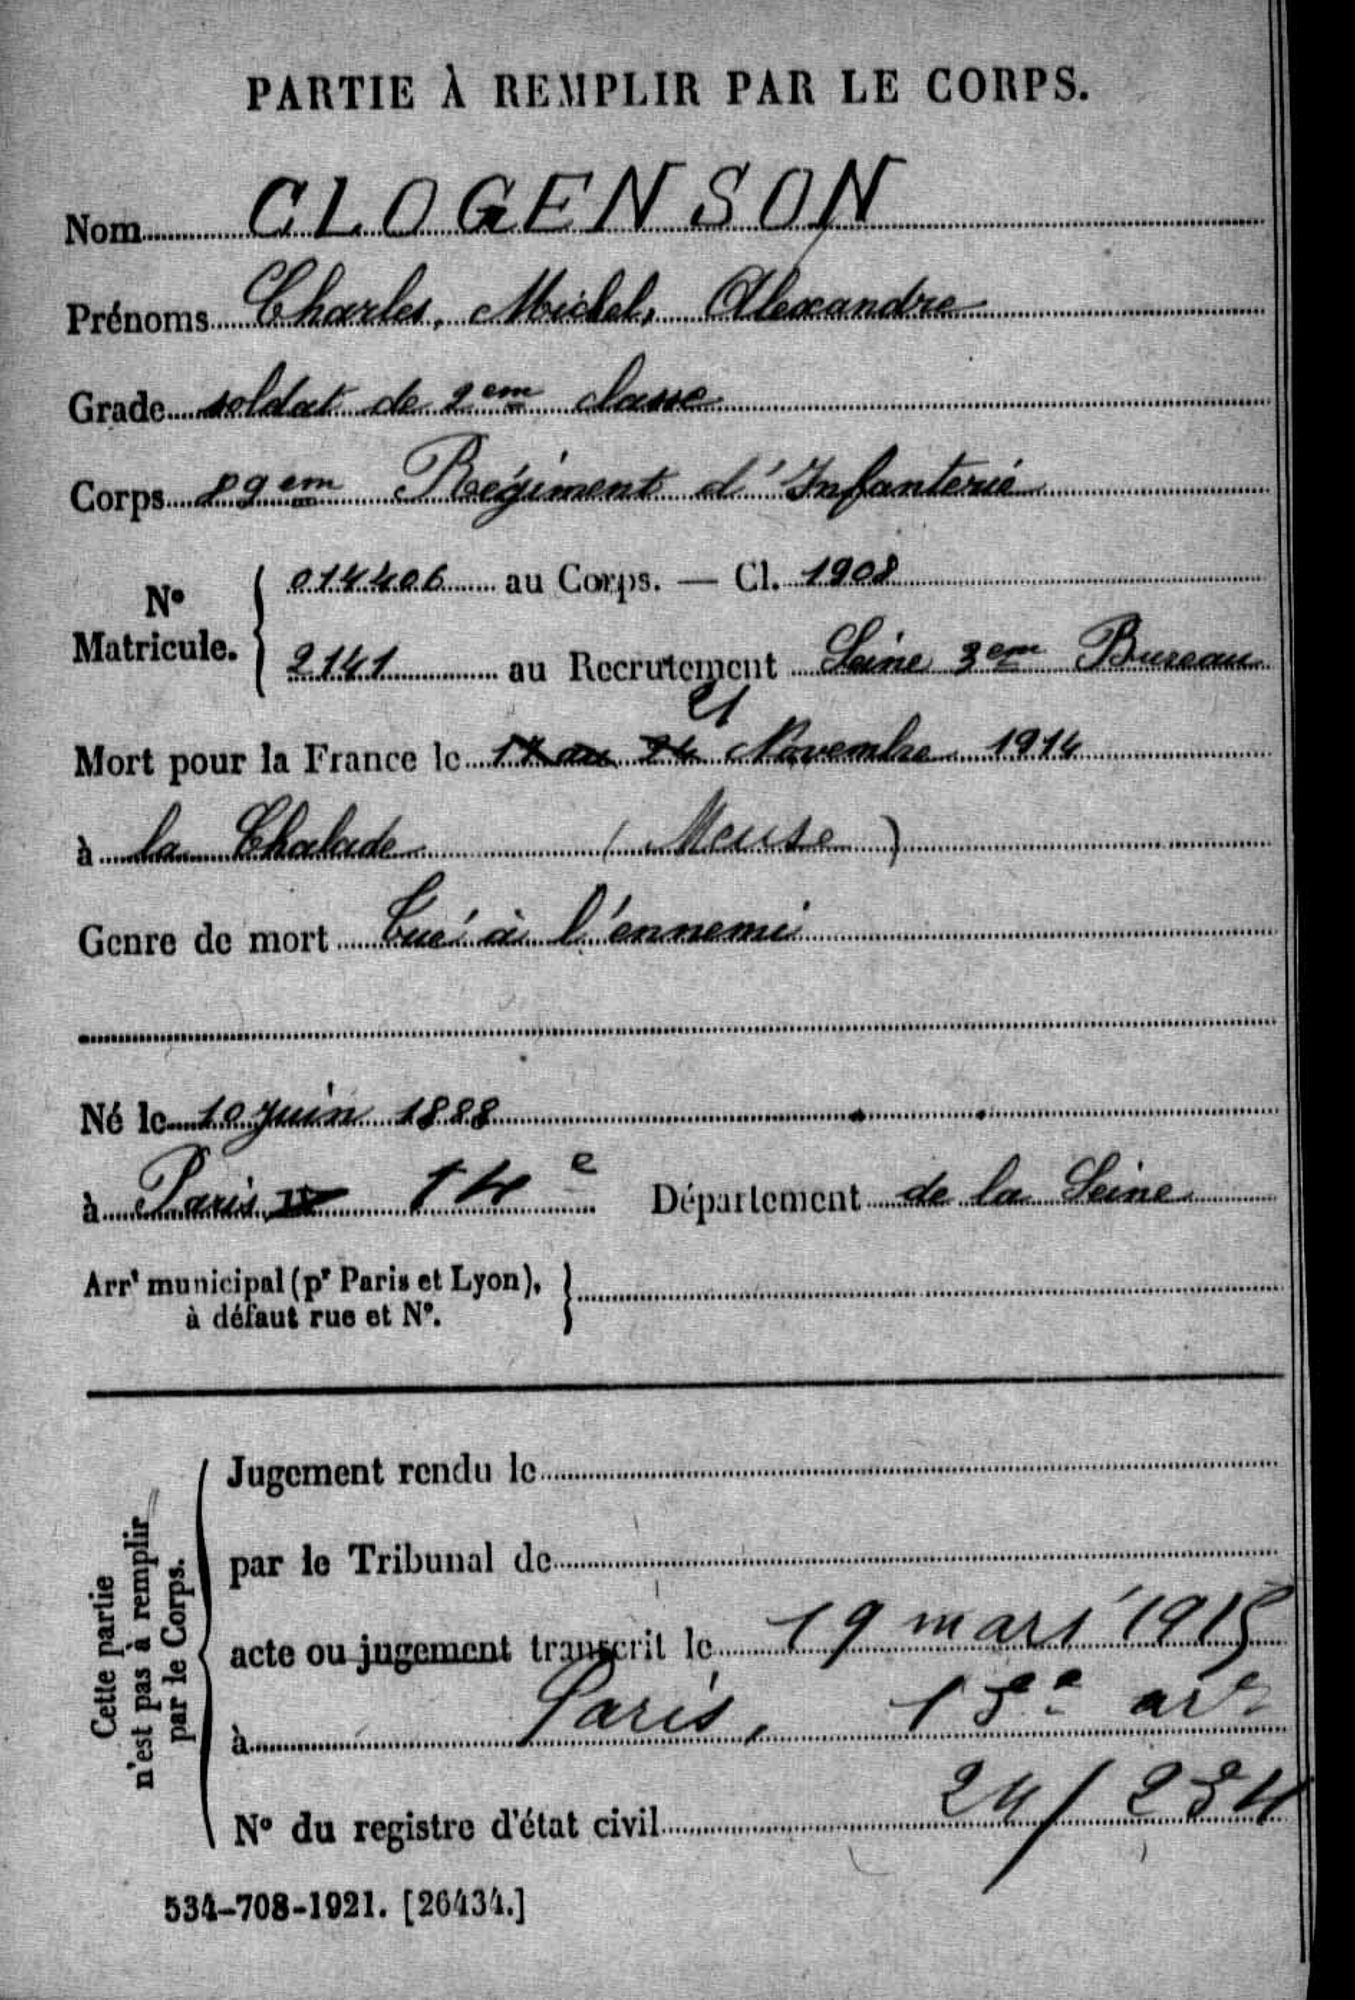 PARTIE À REMPLIR PAR LE CORPS.
Nom CLOGENSON
Prénoms Charles, Michel, Alexandre
Grade soldat de 2em classe
Corps 89em Régiment d'Infanterie
N° Matricule. { 014406 au Corps. — Cl. 1908
2141 au Recrutement Seine 3em Bureau
21
Mort pour la France le 17 au 24 Novembre 1914
à la Chalade (Meuse)
Genre de mort Tué à l'ennemi
Né le 10 Juin 1888
à Paris 14e Département de la Seine
Arrt municipal (pr Paris et Lyon), à défaut rue et N°. }
Cette partie n'est pas à remplir par le Corps.
Jugement rendu le
par le Tribunal de
acte ou jugement transcrit le 19 mars 1915
à Paris, 15e arr
N° du registre d'état civil 24/254
534-708-1921. [26434.]